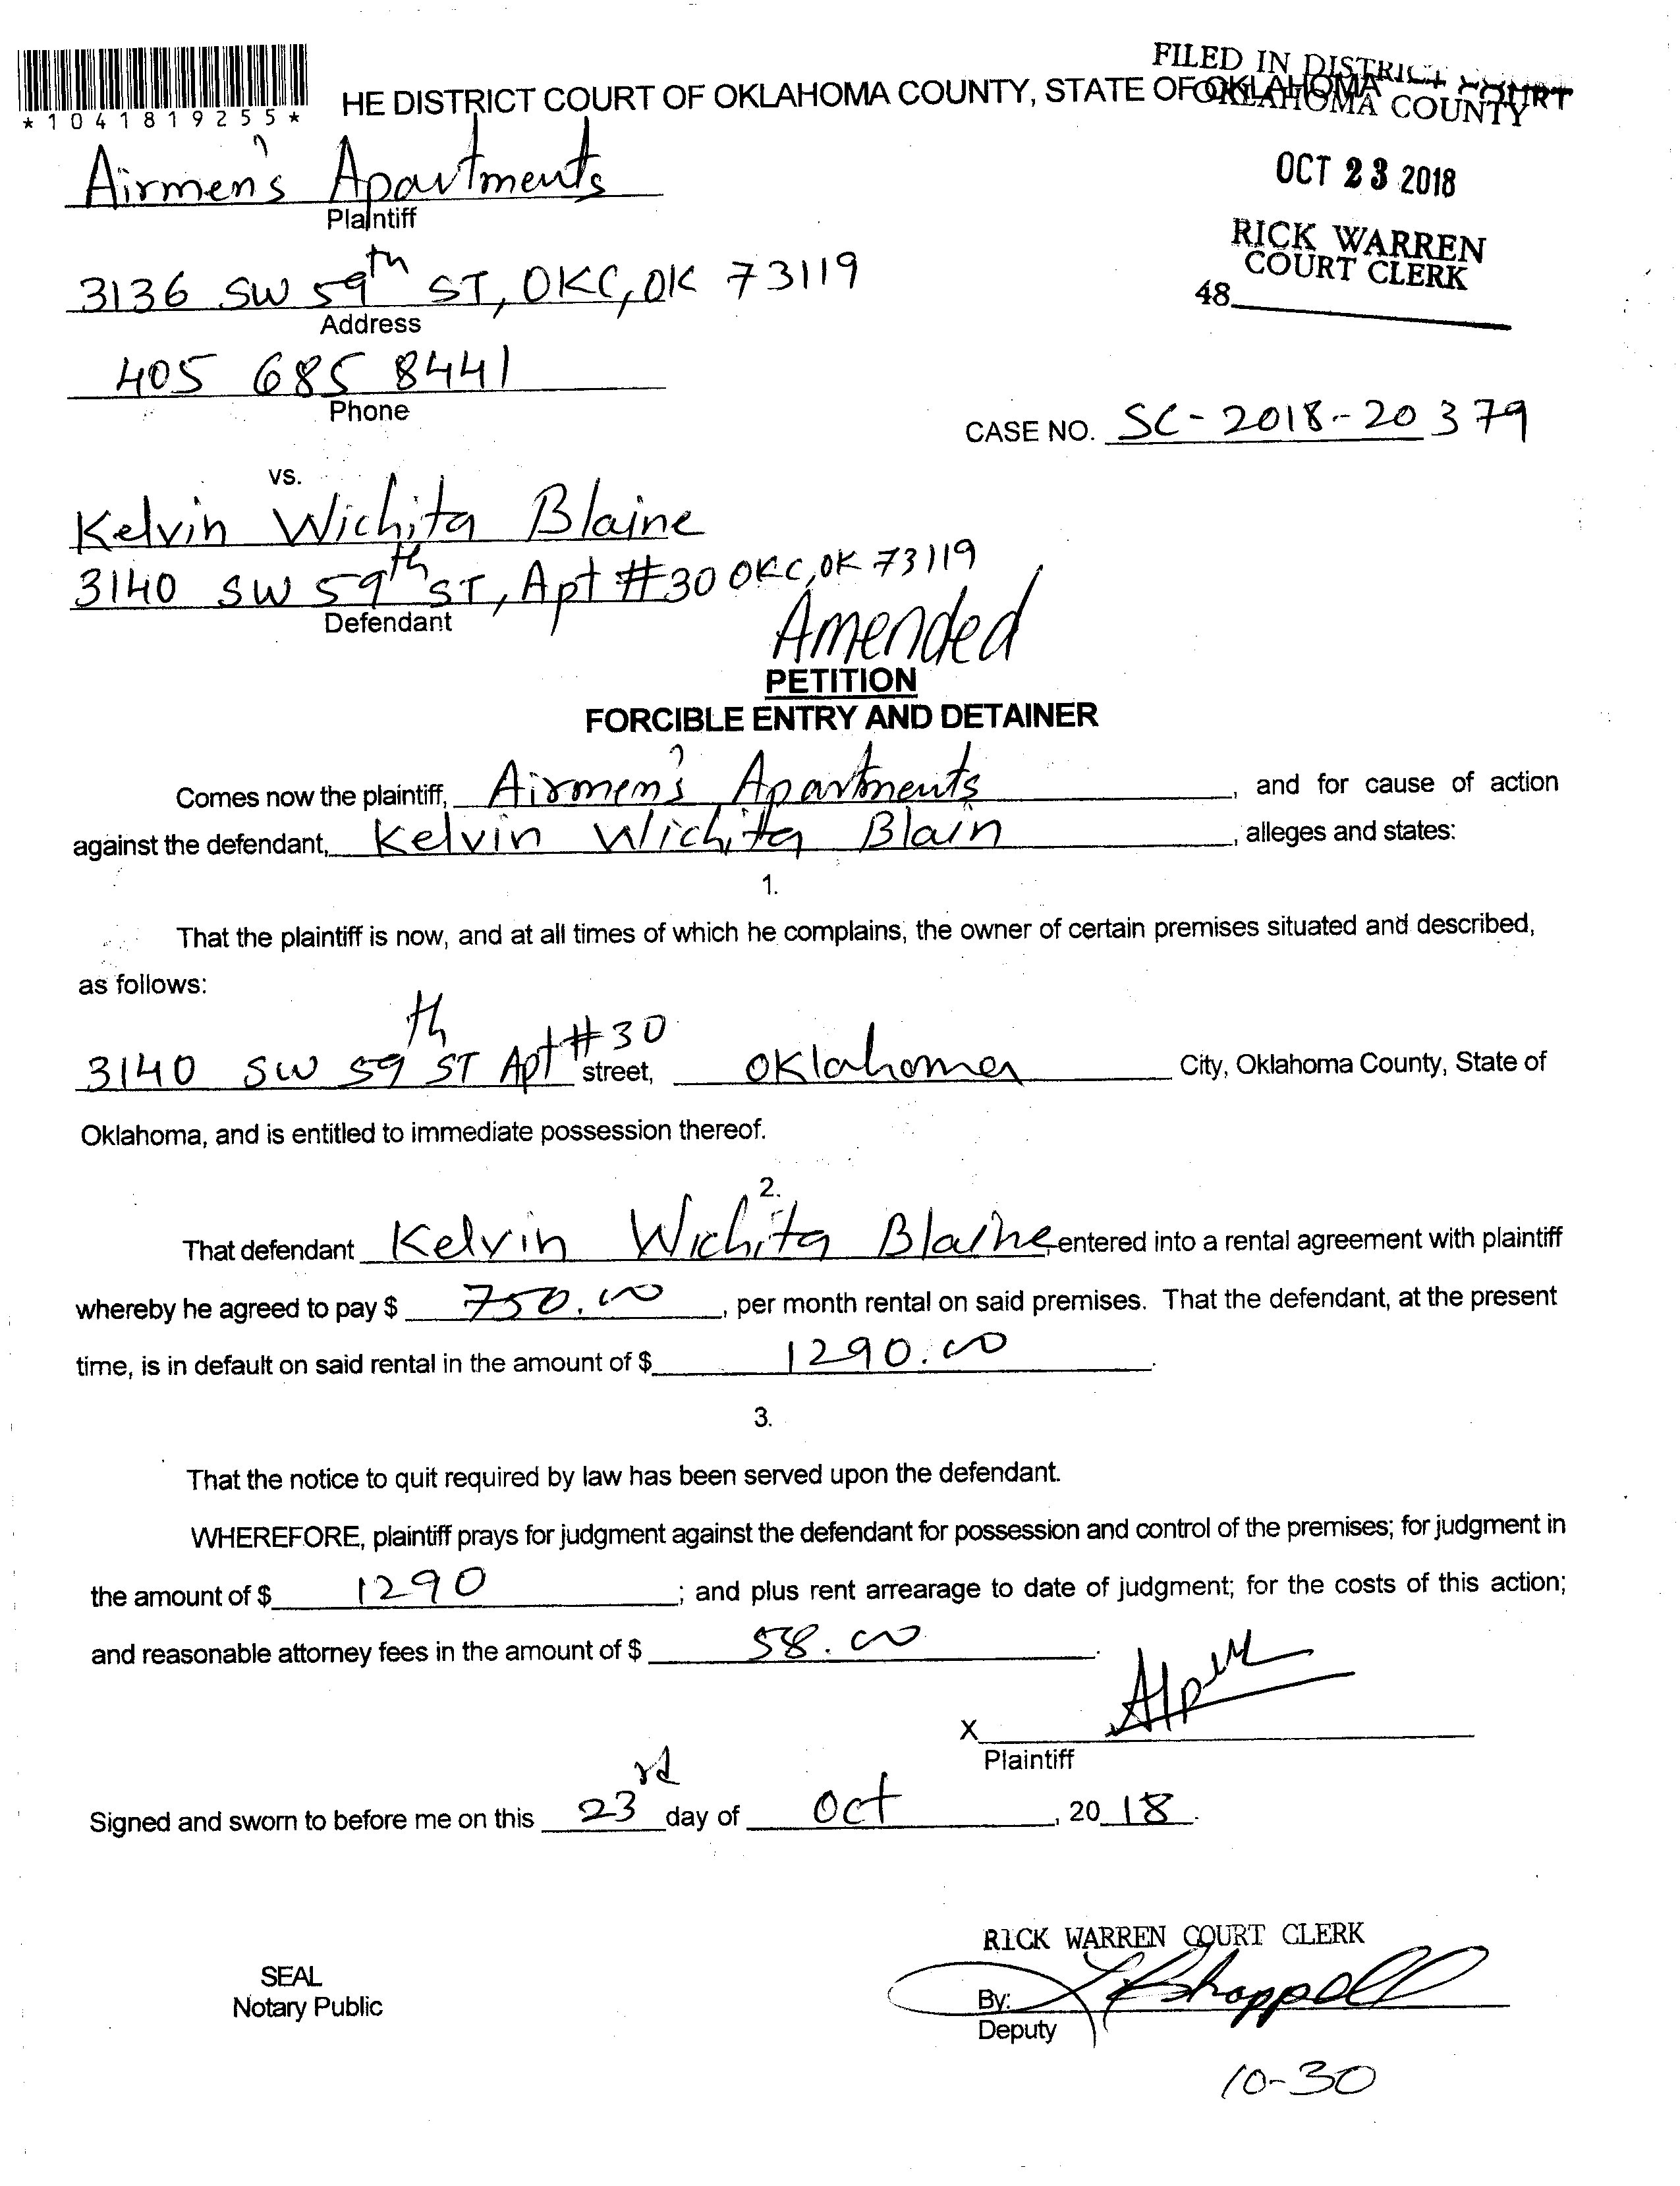 FILED IN DISTRICT COURT
OKLAHOMA COUNTY
*1041819255*
HE DISTRICT COURT OF OKLAHOMA COUNTY, STATE OF OKLAHOMA
OCT 23 2018
RICK WARREN
COURT CLERK
48
Airmen's Apartments
Plaintiff
3136 SW 59th ST, OKC, OK 73119
Address
405 685 8441
Phone
CASE NO. SC-2018-20379
vs.
Kelvin Wichita Blaine
3140 SW 59th ST, Apt #30 OKC, OK 73119
Defendant
Amended
PETITION
FORCIBLE ENTRY AND DETAINER
Comes now the plaintiff, Airmen's Apartments, and for cause of action
against the defendant, Kelvin Wichita Blain, alleges and states:
1.
That the plaintiff is now, and at all times of which he complains, the owner of certain premises situated and described,
as follows:
3140 SW 59th ST Apt #30 street, Oklahoma City, Oklahoma County, State of
Oklahoma, and is entitled to immediate possession thereof.
2.
That defendant Kelvin Wichita Blaine, entered into a rental agreement with plaintiff
whereby he agreed to pay $ 750.00, per month rental on said premises. That the defendant, at the present
time, is in default on said rental in the amount of $ 1290.00.
3.
That the notice to quit required by law has been served upon the defendant.
WHEREFORE, plaintiff prays for judgment against the defendant for possession and control of the premises; for judgment in
the amount of $ 1290; and plus rent arrearage to date of judgment; for the costs of this action;
and reasonable attorney fees in the amount of $ 58.00.
X
Plaintiff
Signed and sworn to before me on this 23rd day of Oct, 2018.
RICK WARREN COURT CLERK
SEAL
Notary Public
By:
Deputy
10-30